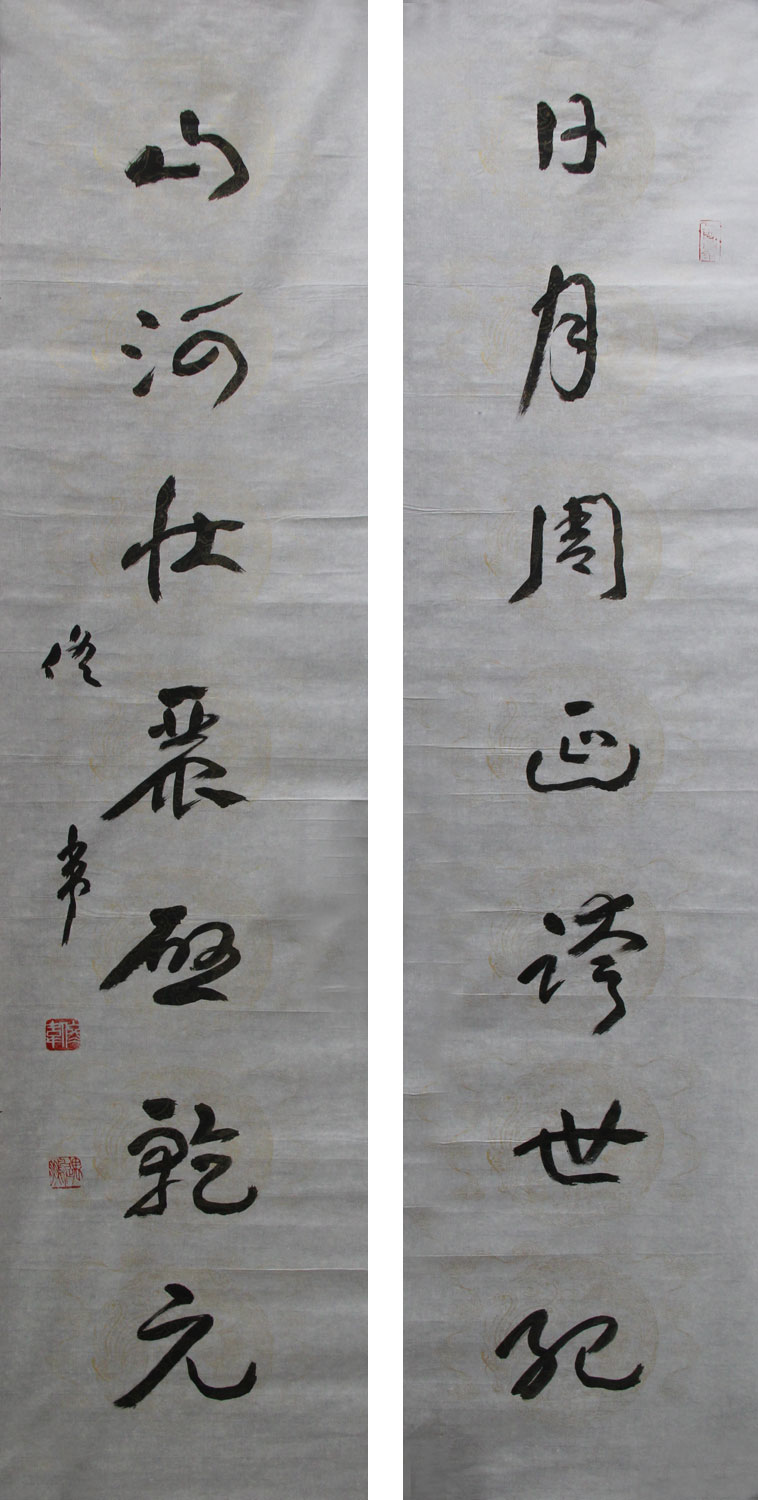 日月周画跨世纪
山河壮丽启乾元